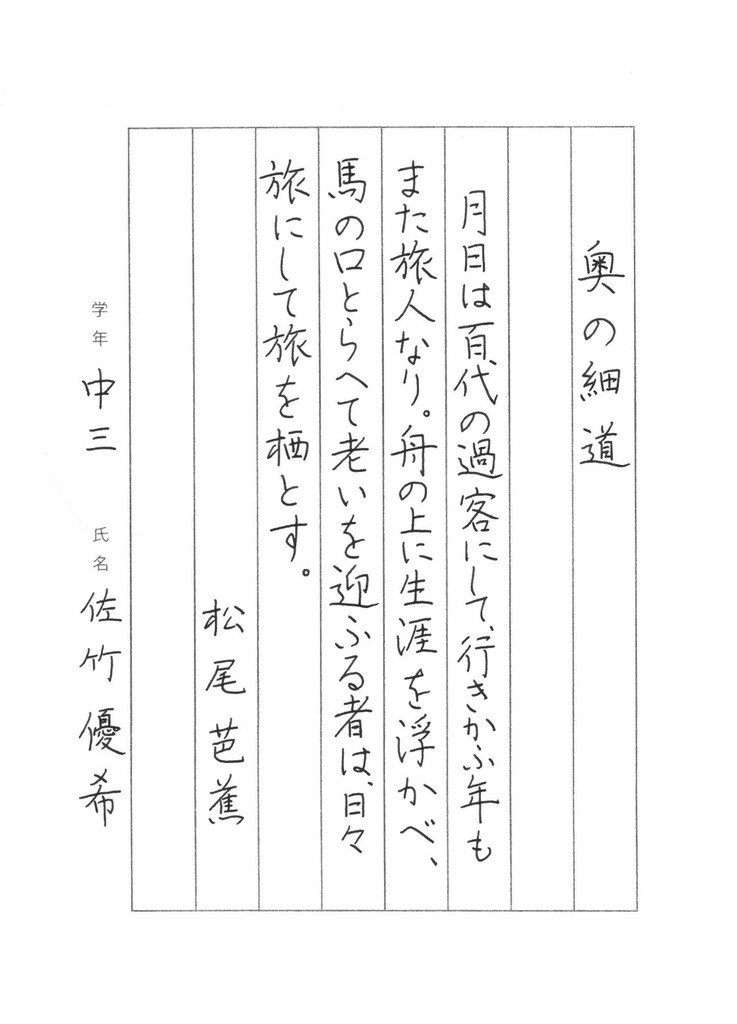 奥の細道
月日は百代の過客にして、行きかふ年も
また旅人なり。舟の上に生涯を浮かべ、
馬の口とらへて老いを迎ふる者は、日々
旅にして旅を栖とす。
松尾芭蕉
学年 中三 氏名 佐竹優希